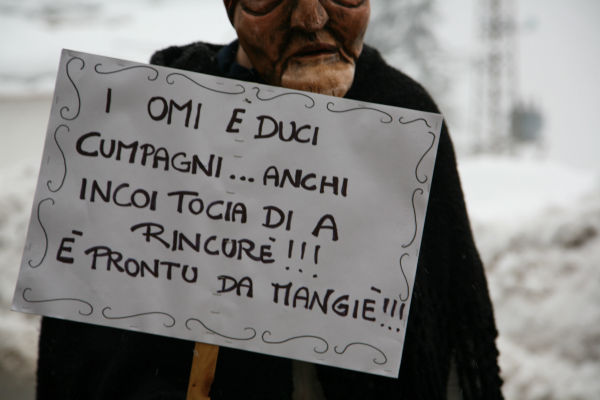 I OMI È DUCI
CUMPAGNI... ANCHI
INCOI TOCIA DI A
RINCURÈ!!!
È PRONTU DA MANGIÈ!!!